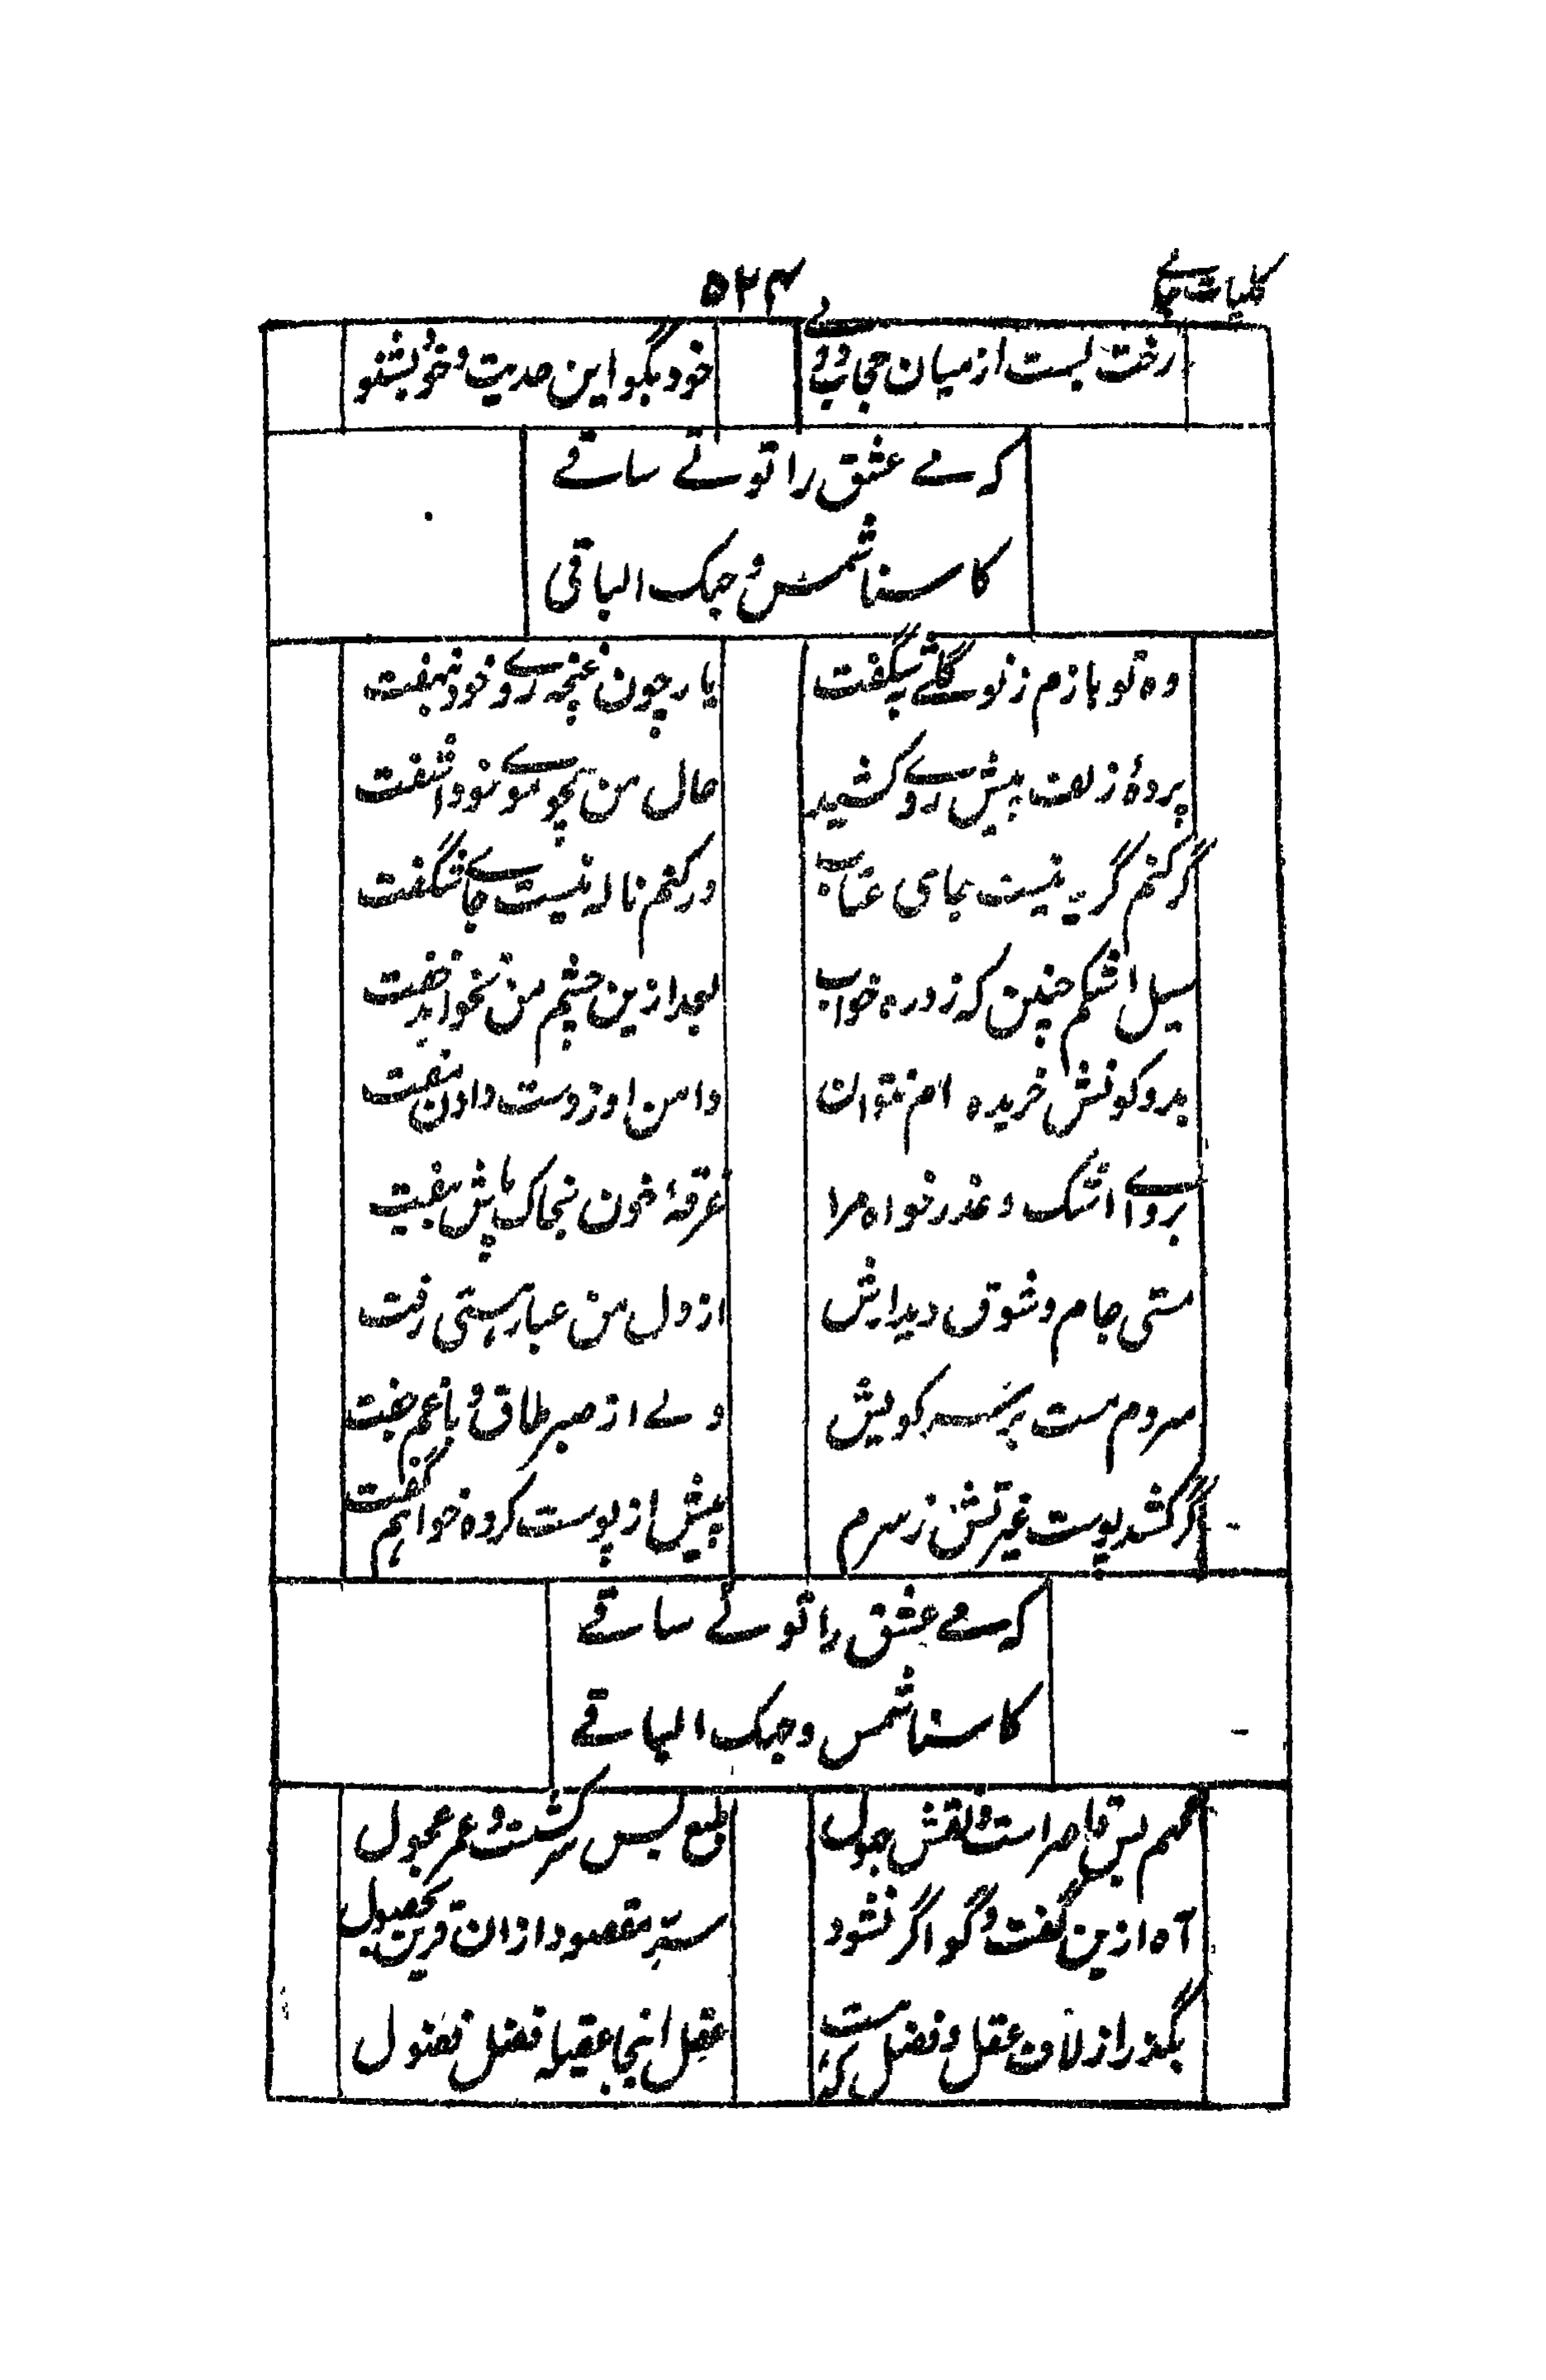 کلیات جامے
۵۲۴
رخت بست از میان حجاب دوے
خود بگو این حدیث و خود بشنو
کہ مے عشق را توئے ساقے
کاسنا شمس وجہک الباقی
وہ کہ بازم ز نو گلے بشگفت
یار چون غنچہ روے خود نہفت
پردۂ زلف پیش روے کشید
حال من ہمچو موے خود آشفت
گر کنم گریہ نیست بجای عتاب
ور کنم نالہ نیست جاے شگفت
سیل اشکم چنین کہ زد رہ خواب
بعد ازین چشم من نخواہد خفت
بدو کونش خریدہ ام نتوان
دامن او ز دست دادن مفت
بروا اے اشک و عذر خواہ مرا
غرقۂ خون بخاک پاش بیفت
مستی جام و شوق دیدارش
از دل من غبار ہستی رفت
مردم مست بر سر کویش
ولے از صبر طاق و با غم جفت
گر کشد پوست غیرتش ز سرم
پیش از پوست کردہ خواہم گفت
کہ مے عشق را توئے ساقے
کاسنا شمس وجہک الباقے
فہم بس قاصر است و نقش جہول
طبع بس سرکش ست و عمر عجول
آہ ازین گفت و گو اگر نشود
ستر مقصود ازان قرین حصول
بگذر از لاف عقل و فضل کہ ہست
عقل اینجا عقیلہ فضل فضول